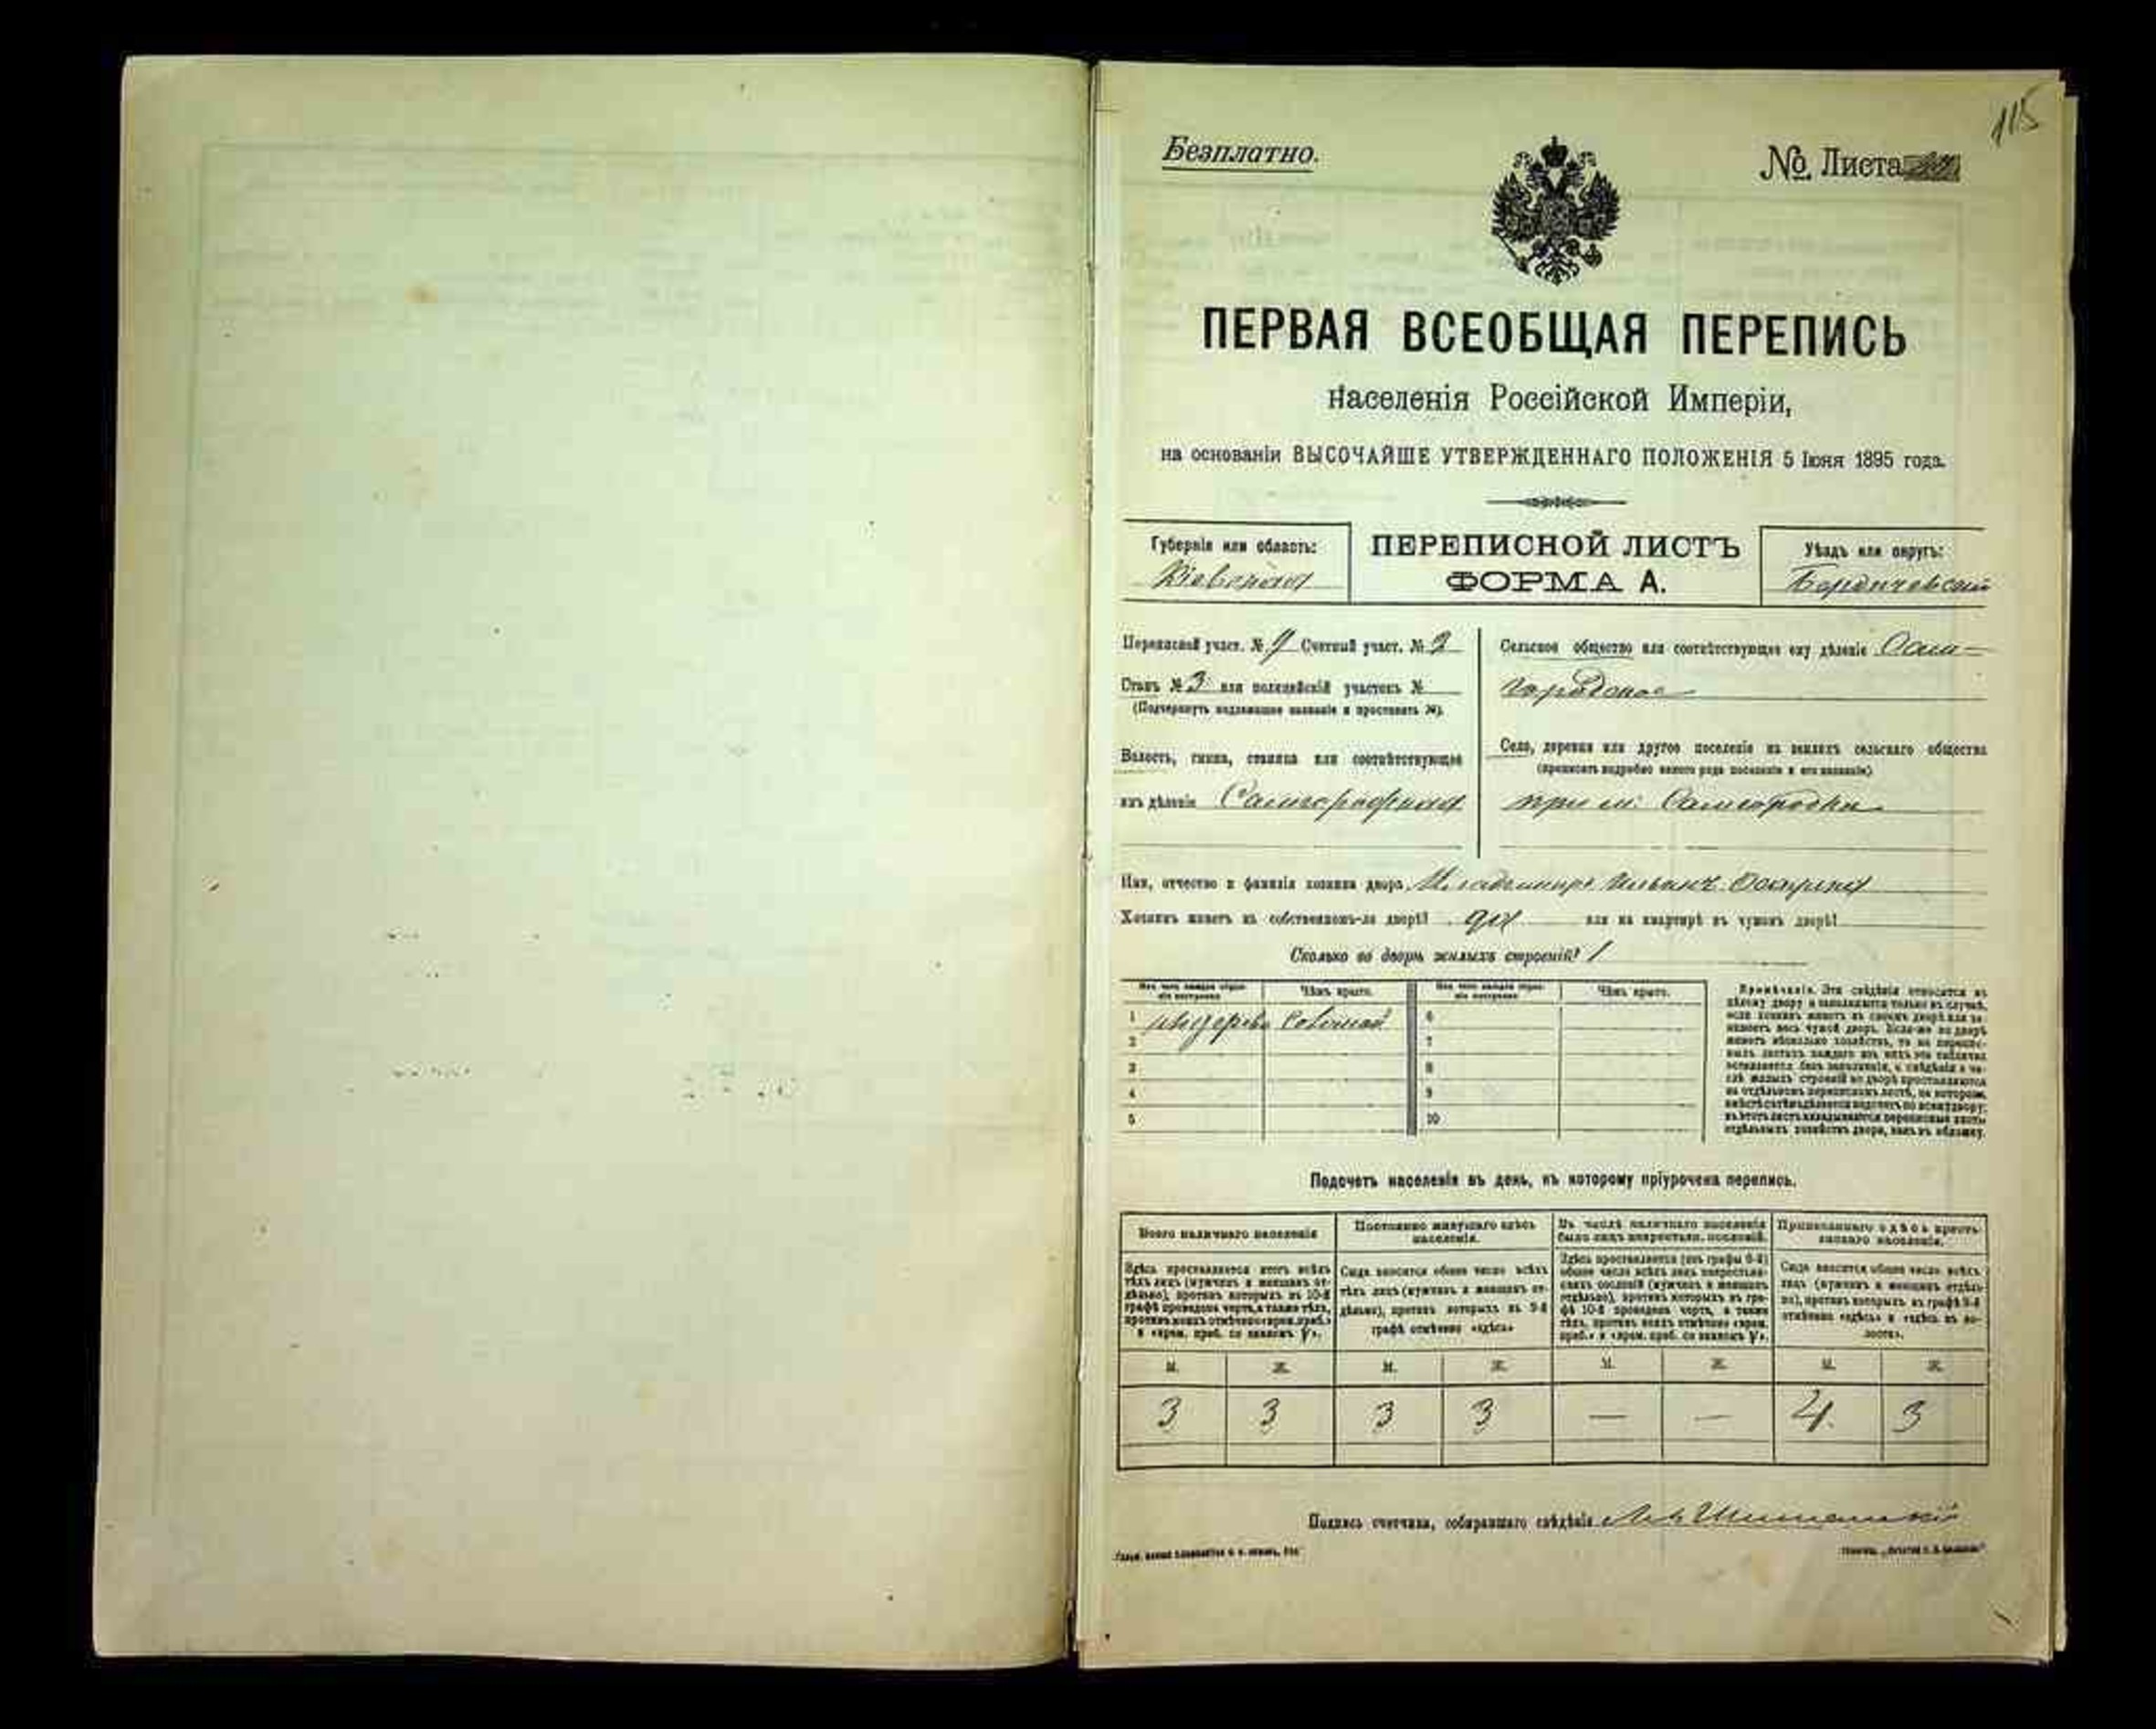 115
Безплатно.
№ Листа
ПЕРВАЯ ВСЕОБЩАЯ ПЕРЕПИСЬ
населенія Россійской Имперіи,
на основаніи ВЫСОЧАЙШЕ УТВЕРЖДЕННАГО ПОЛОЖЕНІЯ 5 Іюня 1895 года.
Губернія или область:
Кіевская
ПЕРЕПИСНОЙ ЛИСТЪ
ФОРМА А.
Уѣздъ или округъ:
Бердичевскій
Переписной участ. № 9 Счетный участ. № 2
Станъ № 3 или полицейскій участокъ №
(Подчеркнуть надлежащее названіе и проставить №).
Волость, гмина, станица или соотвѣтствующее
имъ дѣленіе Самгородская
Сельское общество или соотвѣтствующее ему дѣленіе Сам-
городское
Село, деревня или другое поселеніе на земляхъ сельскаго общества
(прописать подробно какого рода поселеніе и его названіе)
при м. Самгородка
Имя, отчество и фамилія хозяина двора Владимиръ
Хозяинъ живетъ въ собственномъ-ли дворѣ? да или на квартирѣ въ чужомъ дворѣ?
Сколько во дворѣ жилыхъ строеній? 1
Изъ чего каждое строеніе построено Чѣмъ крыто. Изъ чего каждое строеніе построено Чѣмъ крыто.
1 Соломой 6
2 7
3 8
4 9
5 10
Примѣчаніе. Эти свѣдѣнія относятся къ
цѣлому двору и заполняются только въ случаѣ,
если хозяинъ живетъ въ своемъ дворѣ или за-
нимаетъ весь чужой дворъ. Если-же во дворѣ
живетъ нѣсколько хозяйствъ, то на перепис-
ныхъ листахъ каждаго изъ нихъ эта табличка
оставляется безъ заполненія, а свѣдѣнія о чи-
слѣ жилыхъ строеній во дворѣ проставляются
на отдѣльномъ переписномъ листѣ, на которомъ
въ этотъ листъ вкладываются переписные листы
отдѣльныхъ хозяйствъ двора, какъ въ обложку.
Подсчетъ населенія въ день, къ которому пріурочена перепись.
Всего наличнаго населенія
Здѣсь проставляется итогъ всѣхъ
тѣхъ лицъ (мужчинъ и женщинъ от-
дѣльно), противъ которыхъ въ 10-й
графѣ проведена черта, а также тѣхъ,
противъ коихъ отмѣчено «врем. преб.»
и «врем. преб. со знакомъ V».
Постоянно живущаго здѣсь
населенія.
Сюда вносится общее число всѣхъ
тѣхъ лицъ (мужчинъ и женщинъ от-
дѣльно), противъ которыхъ въ 9-й
графѣ отмѣчено «здѣсь»
Въ числѣ наличнаго населенія
было лицъ некрестьян. сословій.
Здѣсь проставляется (изъ графы 6-й)
общее число всѣхъ лицъ некрестьян-
скихъ сословій (мужчинъ и женщинъ
отдѣльно), противъ которыхъ въ гра-
фѣ 10-й проведена черта, а также
тѣхъ, противъ коихъ отмѣчено «врем.
преб.» и «врем. преб. со знакомъ V».
Приписаннаго здѣсь кресть-
янскаго населенія.
Сюда вносится общее число всѣхъ
лицъ (мужчинъ и женщинъ отдѣль-
но), противъ которыхъ въ графѣ 8-й
отмѣчено «здѣсь» и «здѣсь въ во-
лости».
М. Ж. М. Ж. М. Ж. М. Ж.
3 3 3 3 — — 4. 3
Подпись счетчика, собиравшаго свѣдѣнія